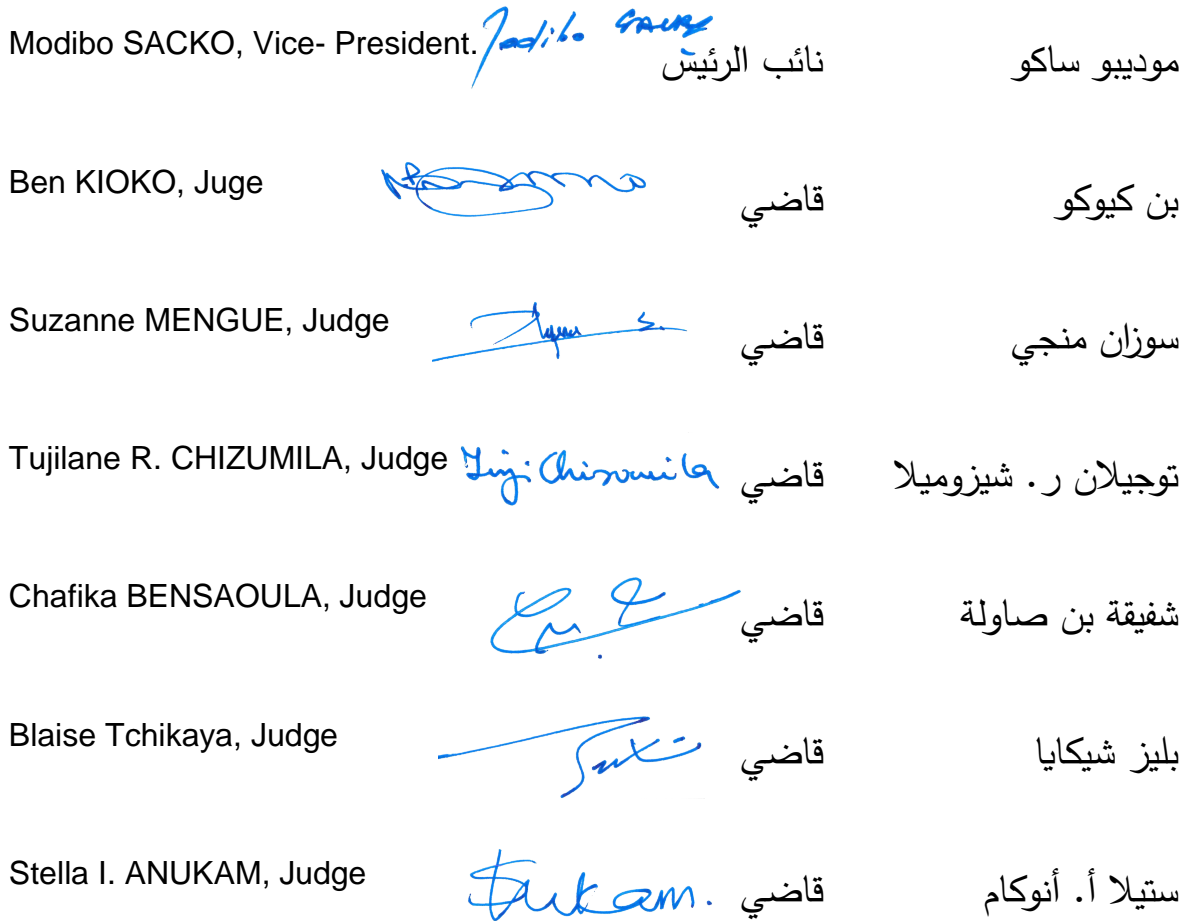 Modibo SACKO, Vice- President. Modibo SACKO نائب الرئيس موديبو ساكو
Ben KIOKO, Juge قاضي بن كيوكو
Suzanne MENGUE, Judge قاضي سوزان منجي
Tujilane R. CHIZUMILA, Judge Tuji Chizumila قاضي توجيلان ر. شيزوميلا
Chafika BENSAOULA, Judge قاضي شفيقة بن صاولة
Blaise Tchikaya, Judge قاضي بليز شيكايا
Stella I. ANUKAM, Judge قاضي ستيلا أ. أنوكام